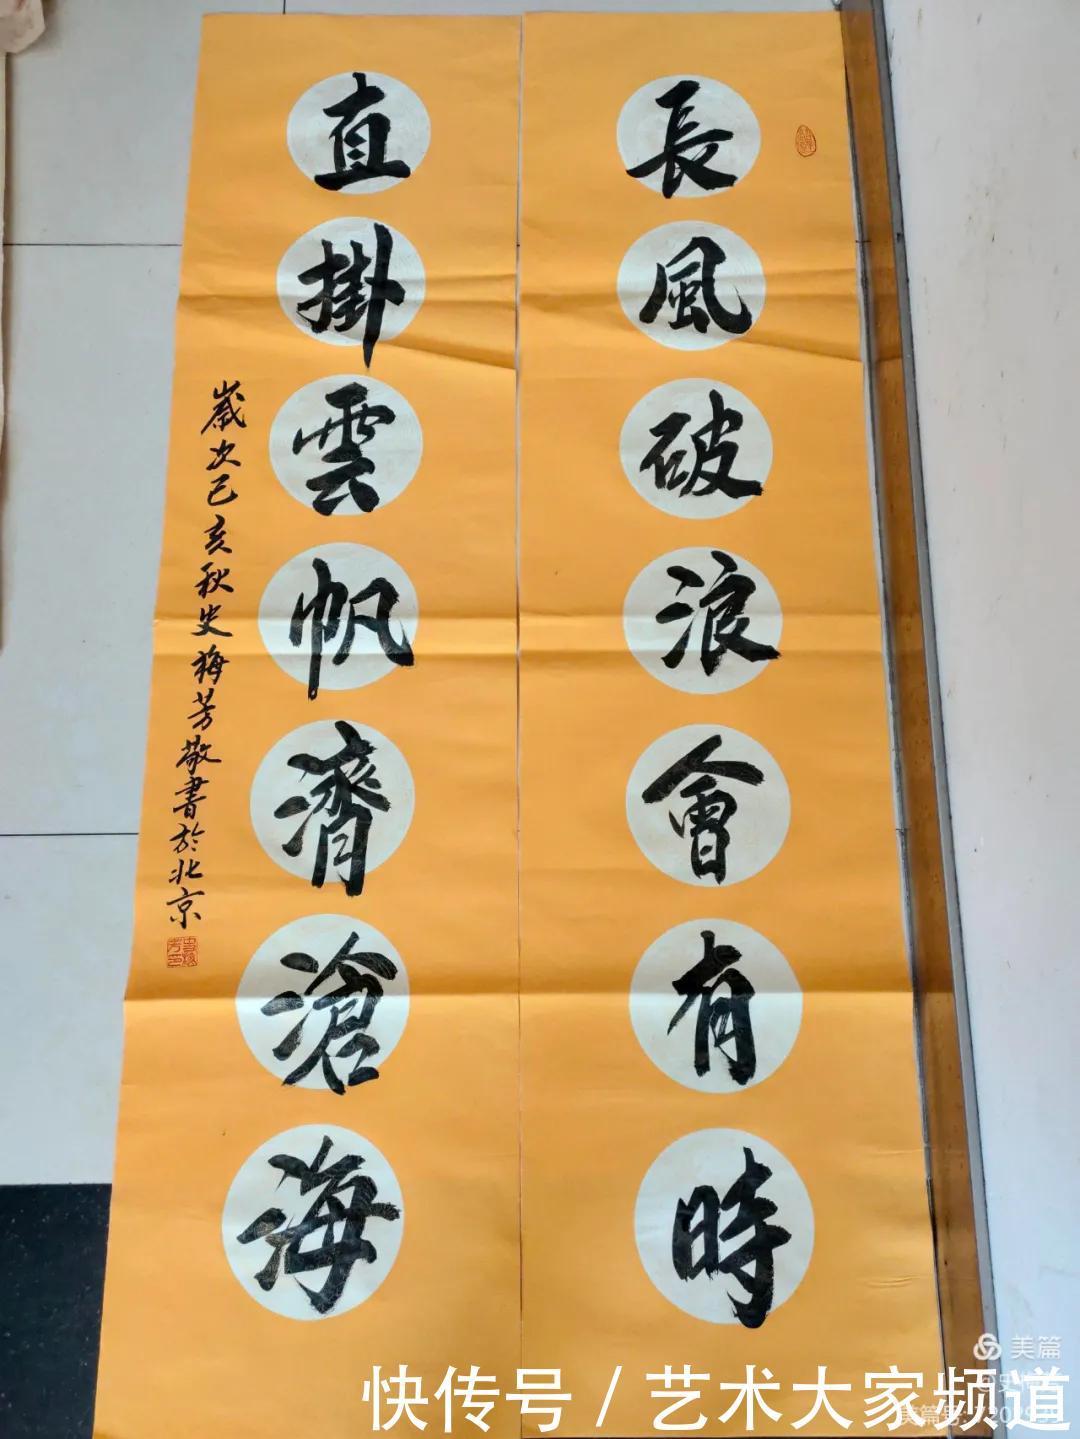 長風破浪會有時
直掛雲帆濟滄海
歲次己亥秋史梅芳敬書於北京
美篇
快传号/艺术大家频道